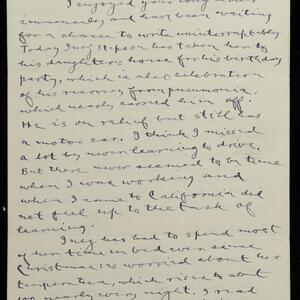 I enjoyed your long
immensely and have been waiting
for a chance to write uninterruptably.
Today Inez Stipson has taken her to
his daughter's house for his birthday
party, which is also celebration
of his recovery from pneumonia,
which nearly carried him off.
He is on relief but still has
a motor car. I think I missed
a lot by never learning to drive.
But there never seemed to be time
when I was working and
when I came to California did
not feel up to the task of
learning.
Inez has had to spend most
of her time in bed ever since
Christmas; is worried about her
temperature, which rises to about
100 nearly every night. I read